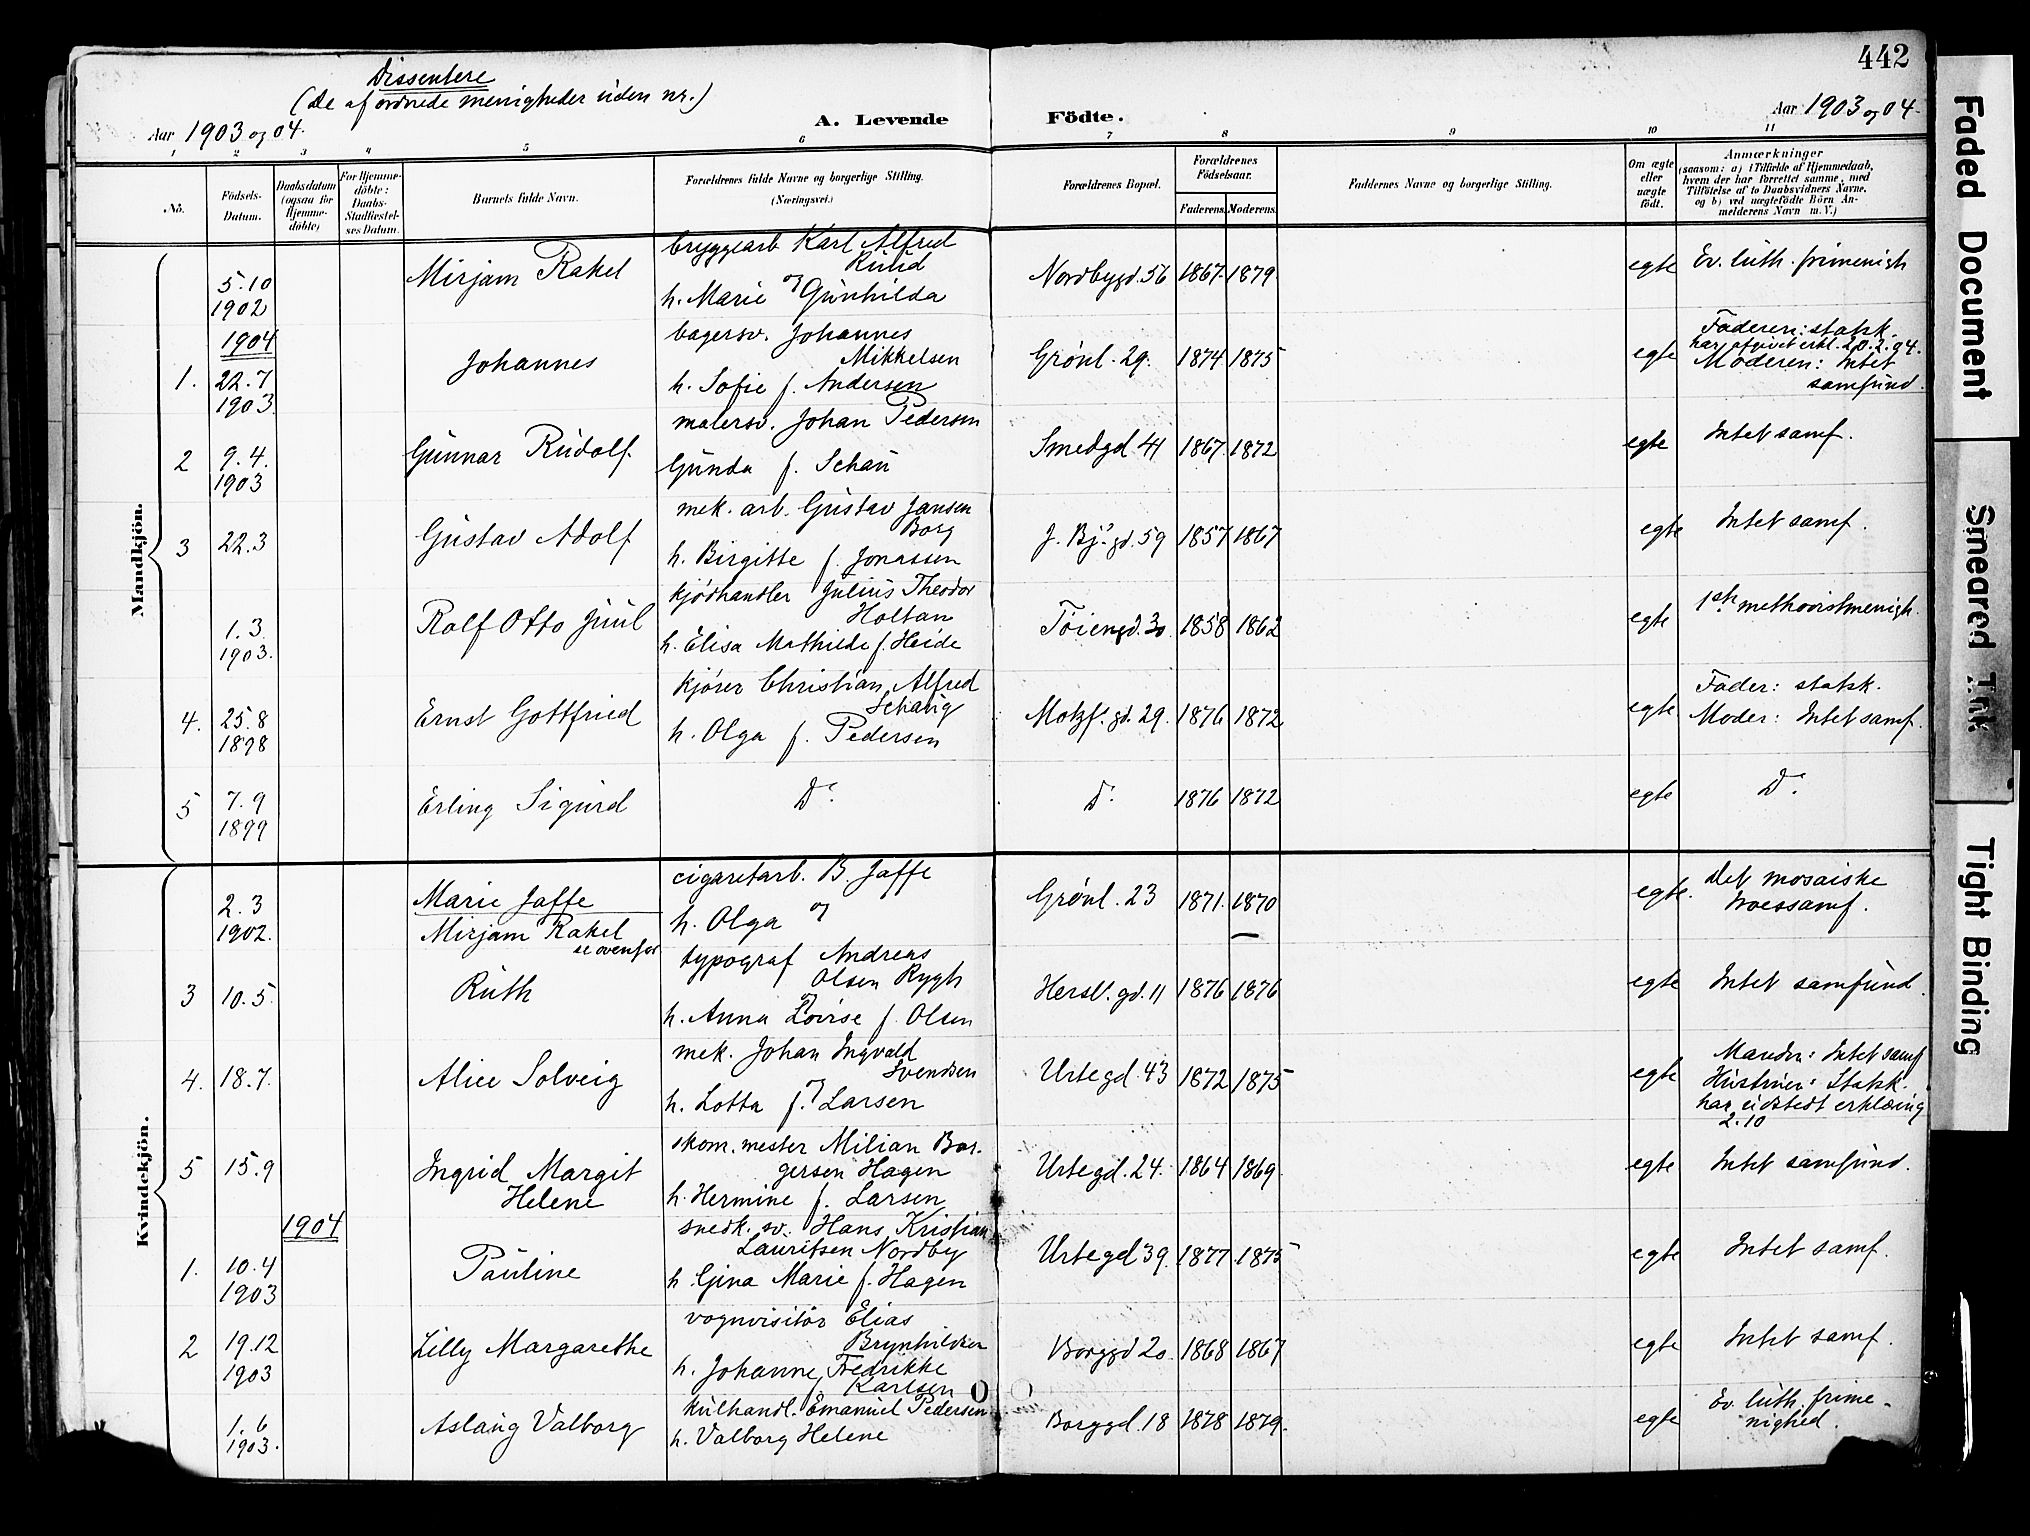 442
Dissentere
(de af ordnede menigheder uden nr.)
Aar 1903 og 04.
A. Levende Födte.
Aar 1903 og 04.
1 2 3 4 5 6 7 8 9 10 11
No.
Födsels-Datum.
Daabsdatum (ogsaa for Hjemme-döbte)
For Hjemme-döbte: Daabs-Stadfæstel-ses Datum.
Barnets fulde Navn.
Forældrenes fulde Navne og borgerlige Stilling.
(Næringsvei.)
Forældrenes Bopæl.
Forældrenes Födselsaar.
Faderens. Moderens.
Faddernes Navne og borgerlige Stilling.
Om ægte eller uægte födt.
Anmærkninger
(saasom: a) i Tilfælde af Hjemmedaab, hvem der har forrettet samme, med Tilföielse af to Daabsvidners Navne, og b) ved uægtefödte Börn An-melderens Navn m. V.)
Mandkjön.
5.10 1902 Mirjam Rakel
bryggearb Karl Alfred
Ruud
h. Marie og Gunhilda
Nordbygd. 56 1867. 1879. egte Ev. luth. frimenigh
1904
1. 22.7 1903 Johannes
bagersv. Johannes
Mikkelsen
h. Sofie f. Andersen
Grønl. 29. 1874 1875 egte
Faderen: statsk.
har afgivet erkl. 20.2.04.
Moderen: Intet
samfund.
2 9.4. 1903 Gunnar Rudolf.
malersv. Johan Pedersen
Gunda f. Schau
Smedgd 41 1867. 1872 egte Intet samf.
3 22.3 Gustav Adolf
mek. arb. Gustav Jansen
Borg
h. Birgitte f. Jonassen
J. Bj.s gd. 59 1857 1867 egte Intet samf.
1.3. 1903. Rolf Otto Juul
kjødhandler Julius Theodor
Holtan
h. Elisa Mathilde f. Heide
Tøiengd. 30 1858 1862 egte 1ste methodistmenigh.
4. 25.8 1898 Ernst Gottfried
kjører Christian Alfred
Schaug
h. Olga f. Pedersen
Motzf. gd. 29. 1876 1872 egte
Fader: statsk.
Moder: Intet samf.
5 7.9 1899 Erling Sigurd Do. Do. 1876 1872 egte Do.
Kvindekjön.
2.3 1902. Marie Jaffe
cigaretarb. B. Jaffe
h. Olga og
Grønl. 23 1871. 1870 egte.
Det mosaiske
troessamf.
Mirjam Rakel
se ovenfor
3 10.5. Ruth
typograf Andreas
Olsen Rygh
og
h. Anna Lovise f. Olsen
Hersl. gd. 11 1876 1876 egte Intet samfund.
4. 18.7. Alice Solveig
mek. Johan Ingvald
Svendsen
og
h. Lotta f. Larsen
Urtegd. 43 1872 1875 egte
Manden: Intet samf
Hustruen: Statsk.
har eidstedt erklæring
2.10
5 15.9 Ingrid Margit
Helene
skom. mester Milian Bør-
gersen Hagen
h. Hermine f. Larsen
Urtegd. 24. 1864 1869. egte Intet samfund.
1904
1. 10.4 1903 Pauline
snedk. sv. Hans Kristian
Lauritsen Nordby
h. Gina Marie f. Hagen
Urtegd 39. 1877 1875 egte Intet samf.
2 19.12 1903 Lilly Margarethe
vognvisitør Elias
Brynhildsen
h. Johanne Fredrikke
f. Karlsen
Borggd 20. 1868 1867 egte Intet samf.
1.6 1903. Aslaug Valborg
kulhandl. Emanuel Pedersen
h. Valborg Helene
Borggd. 18 1878 1879. egte
Ev. luth. frime-
nighed.
Faded Document
Smeared Ink
Tight Binding